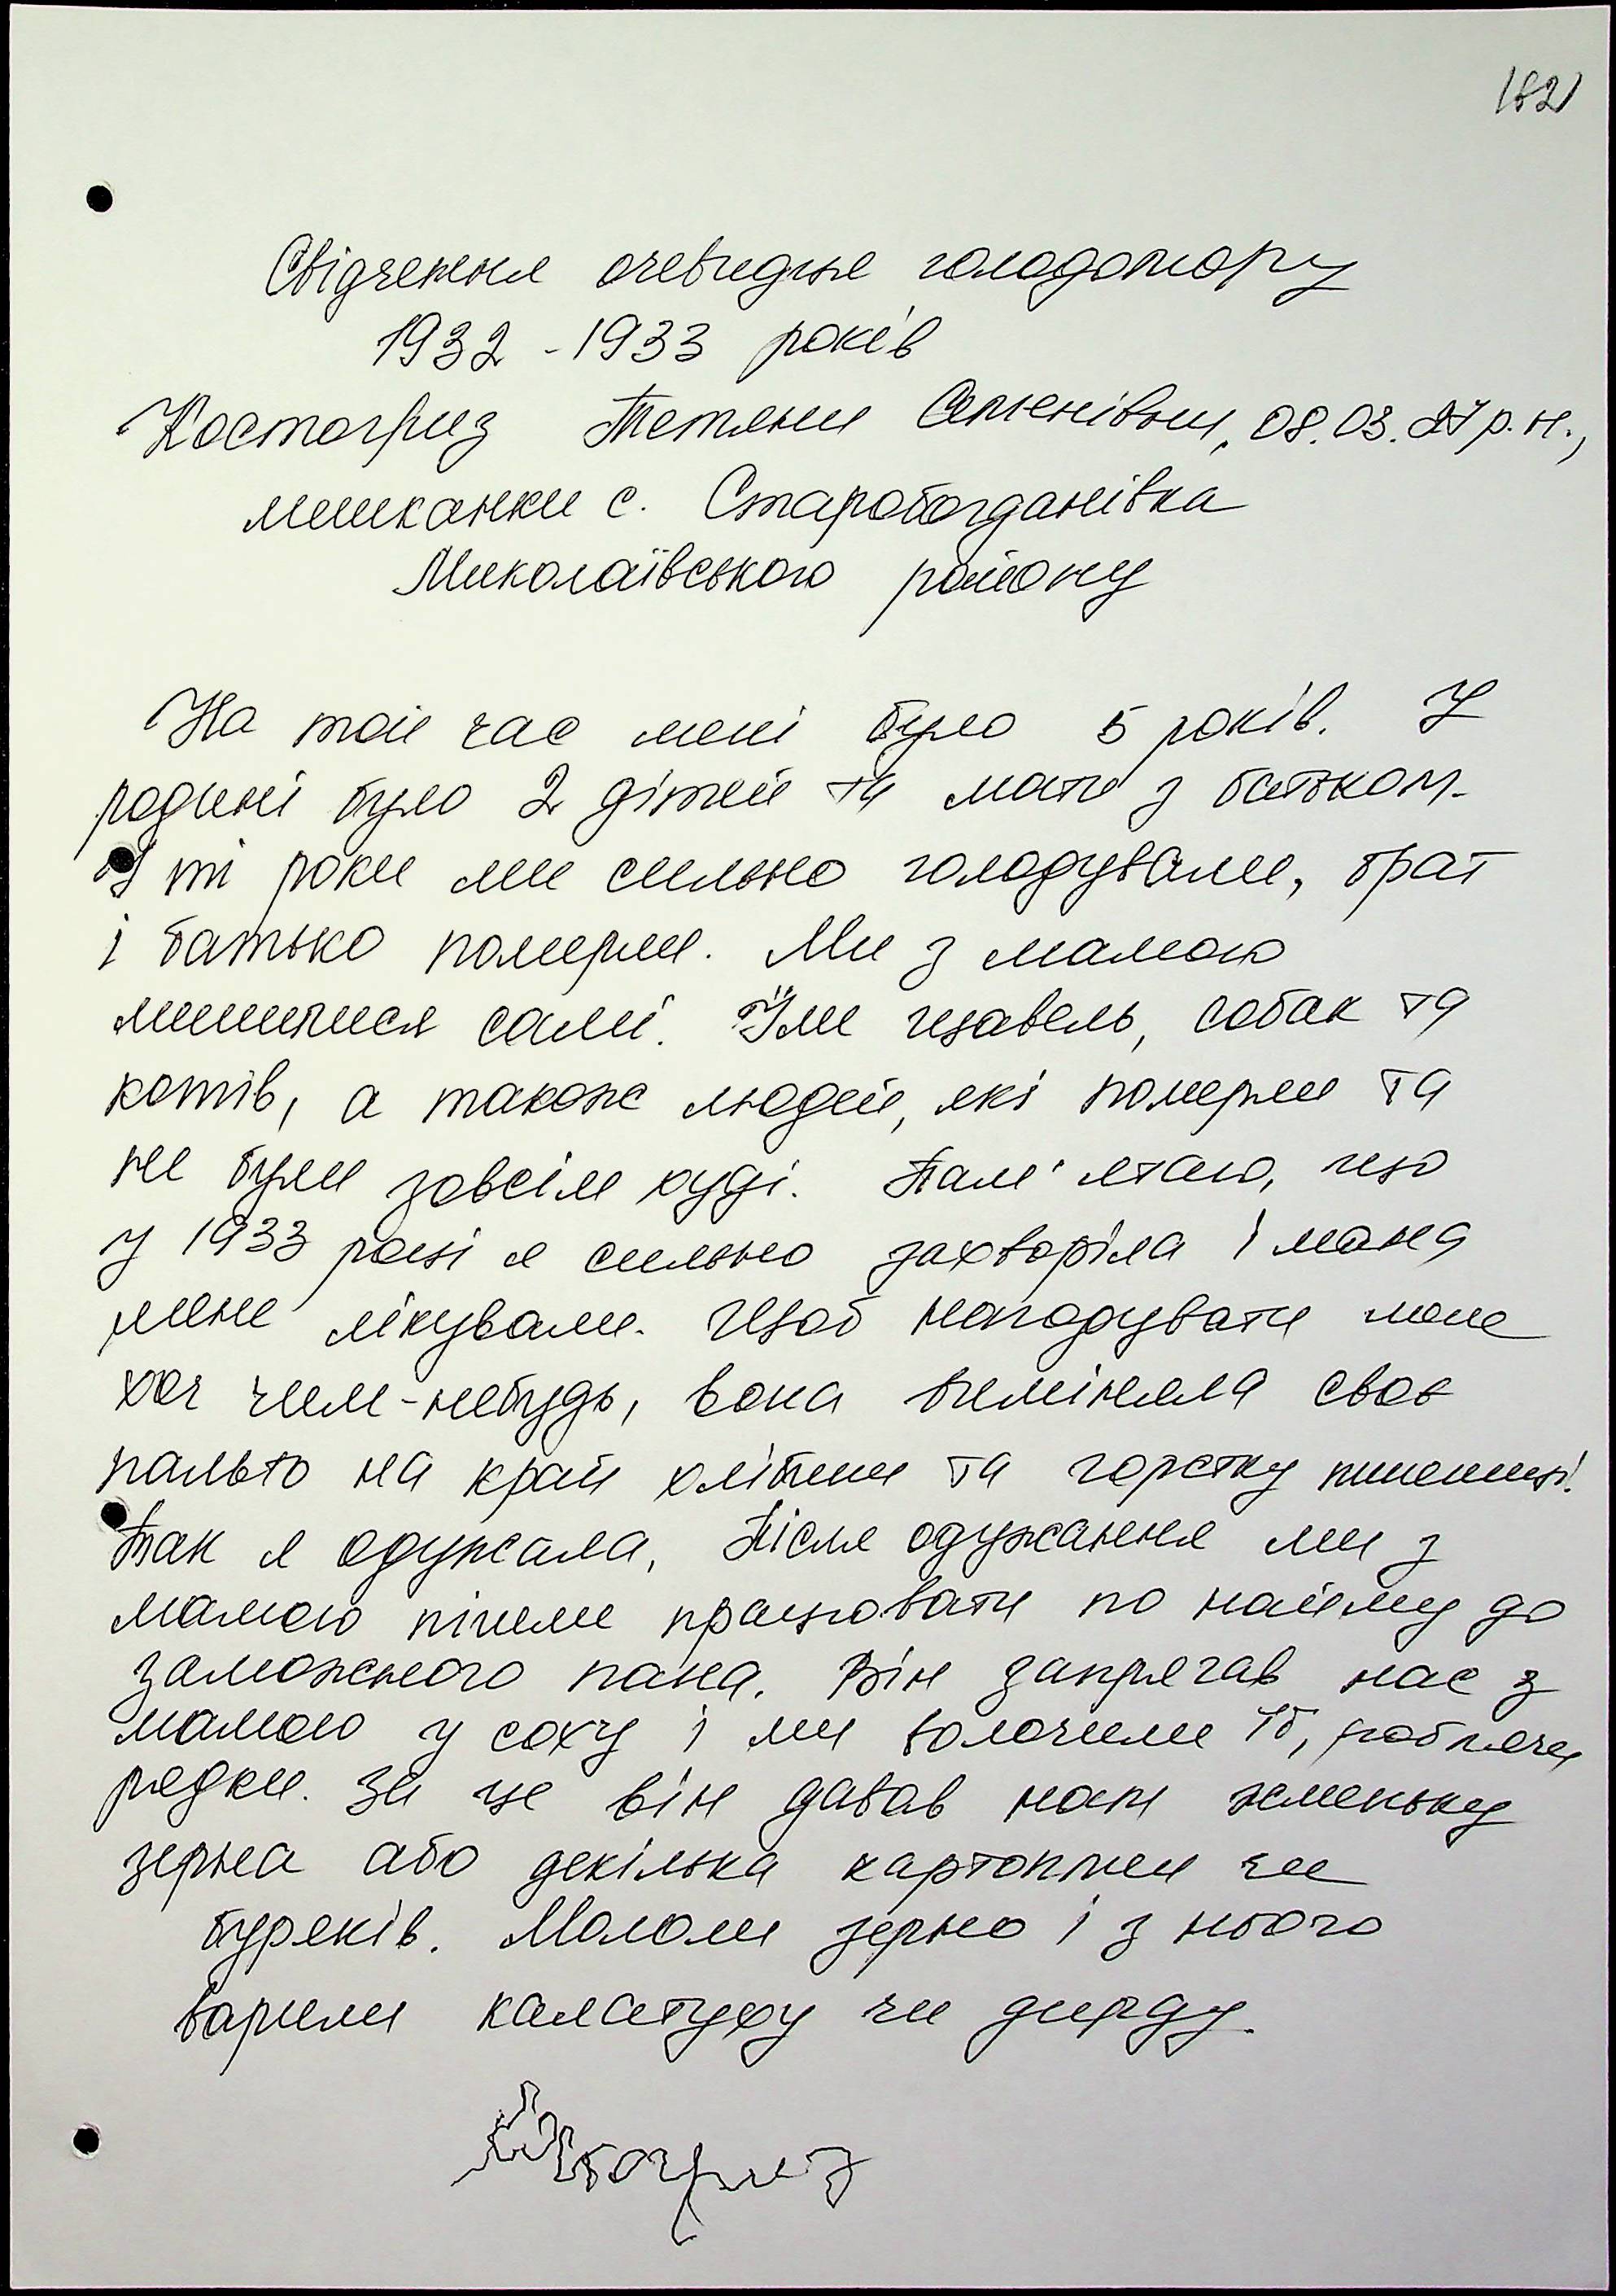 182
Свідчення очевидця голодомору
1932 - 1933 років
Костогриз Тетяни Семенівни, 08.03.27 р.н.,
мешканки с. Старобогданівка
Миколаївського району
На той час мені було 5 років. У
родині було 2 дітей та мати з батьком.
У ті роки ми сильно голодували, брат
і батько померли. Ми з мамою
лишилися самі. Їли щавель, собак та
котів, а також людей, які померли та
не були зовсім худі. Пам'ятаю, що
у 1933 році я сильно захворіла і мама
мене лікували. Щоб нагодувати мене
хоч чим-небудь, вона виміняла своє
пальто на край хлібини та горстку пшениці.
Так я одужала. Після одужання ми з
мамою пішли працювати по найму до
заможного пана. Він запрягав нас з
мамою у соху і ми волочили її, роблячи
рядки. За це він давав нам жменьку
зерна або декілька картоплин чи
буряків. Мололи зерно і з нього
варили калатуху чи дирду.
Костогриз